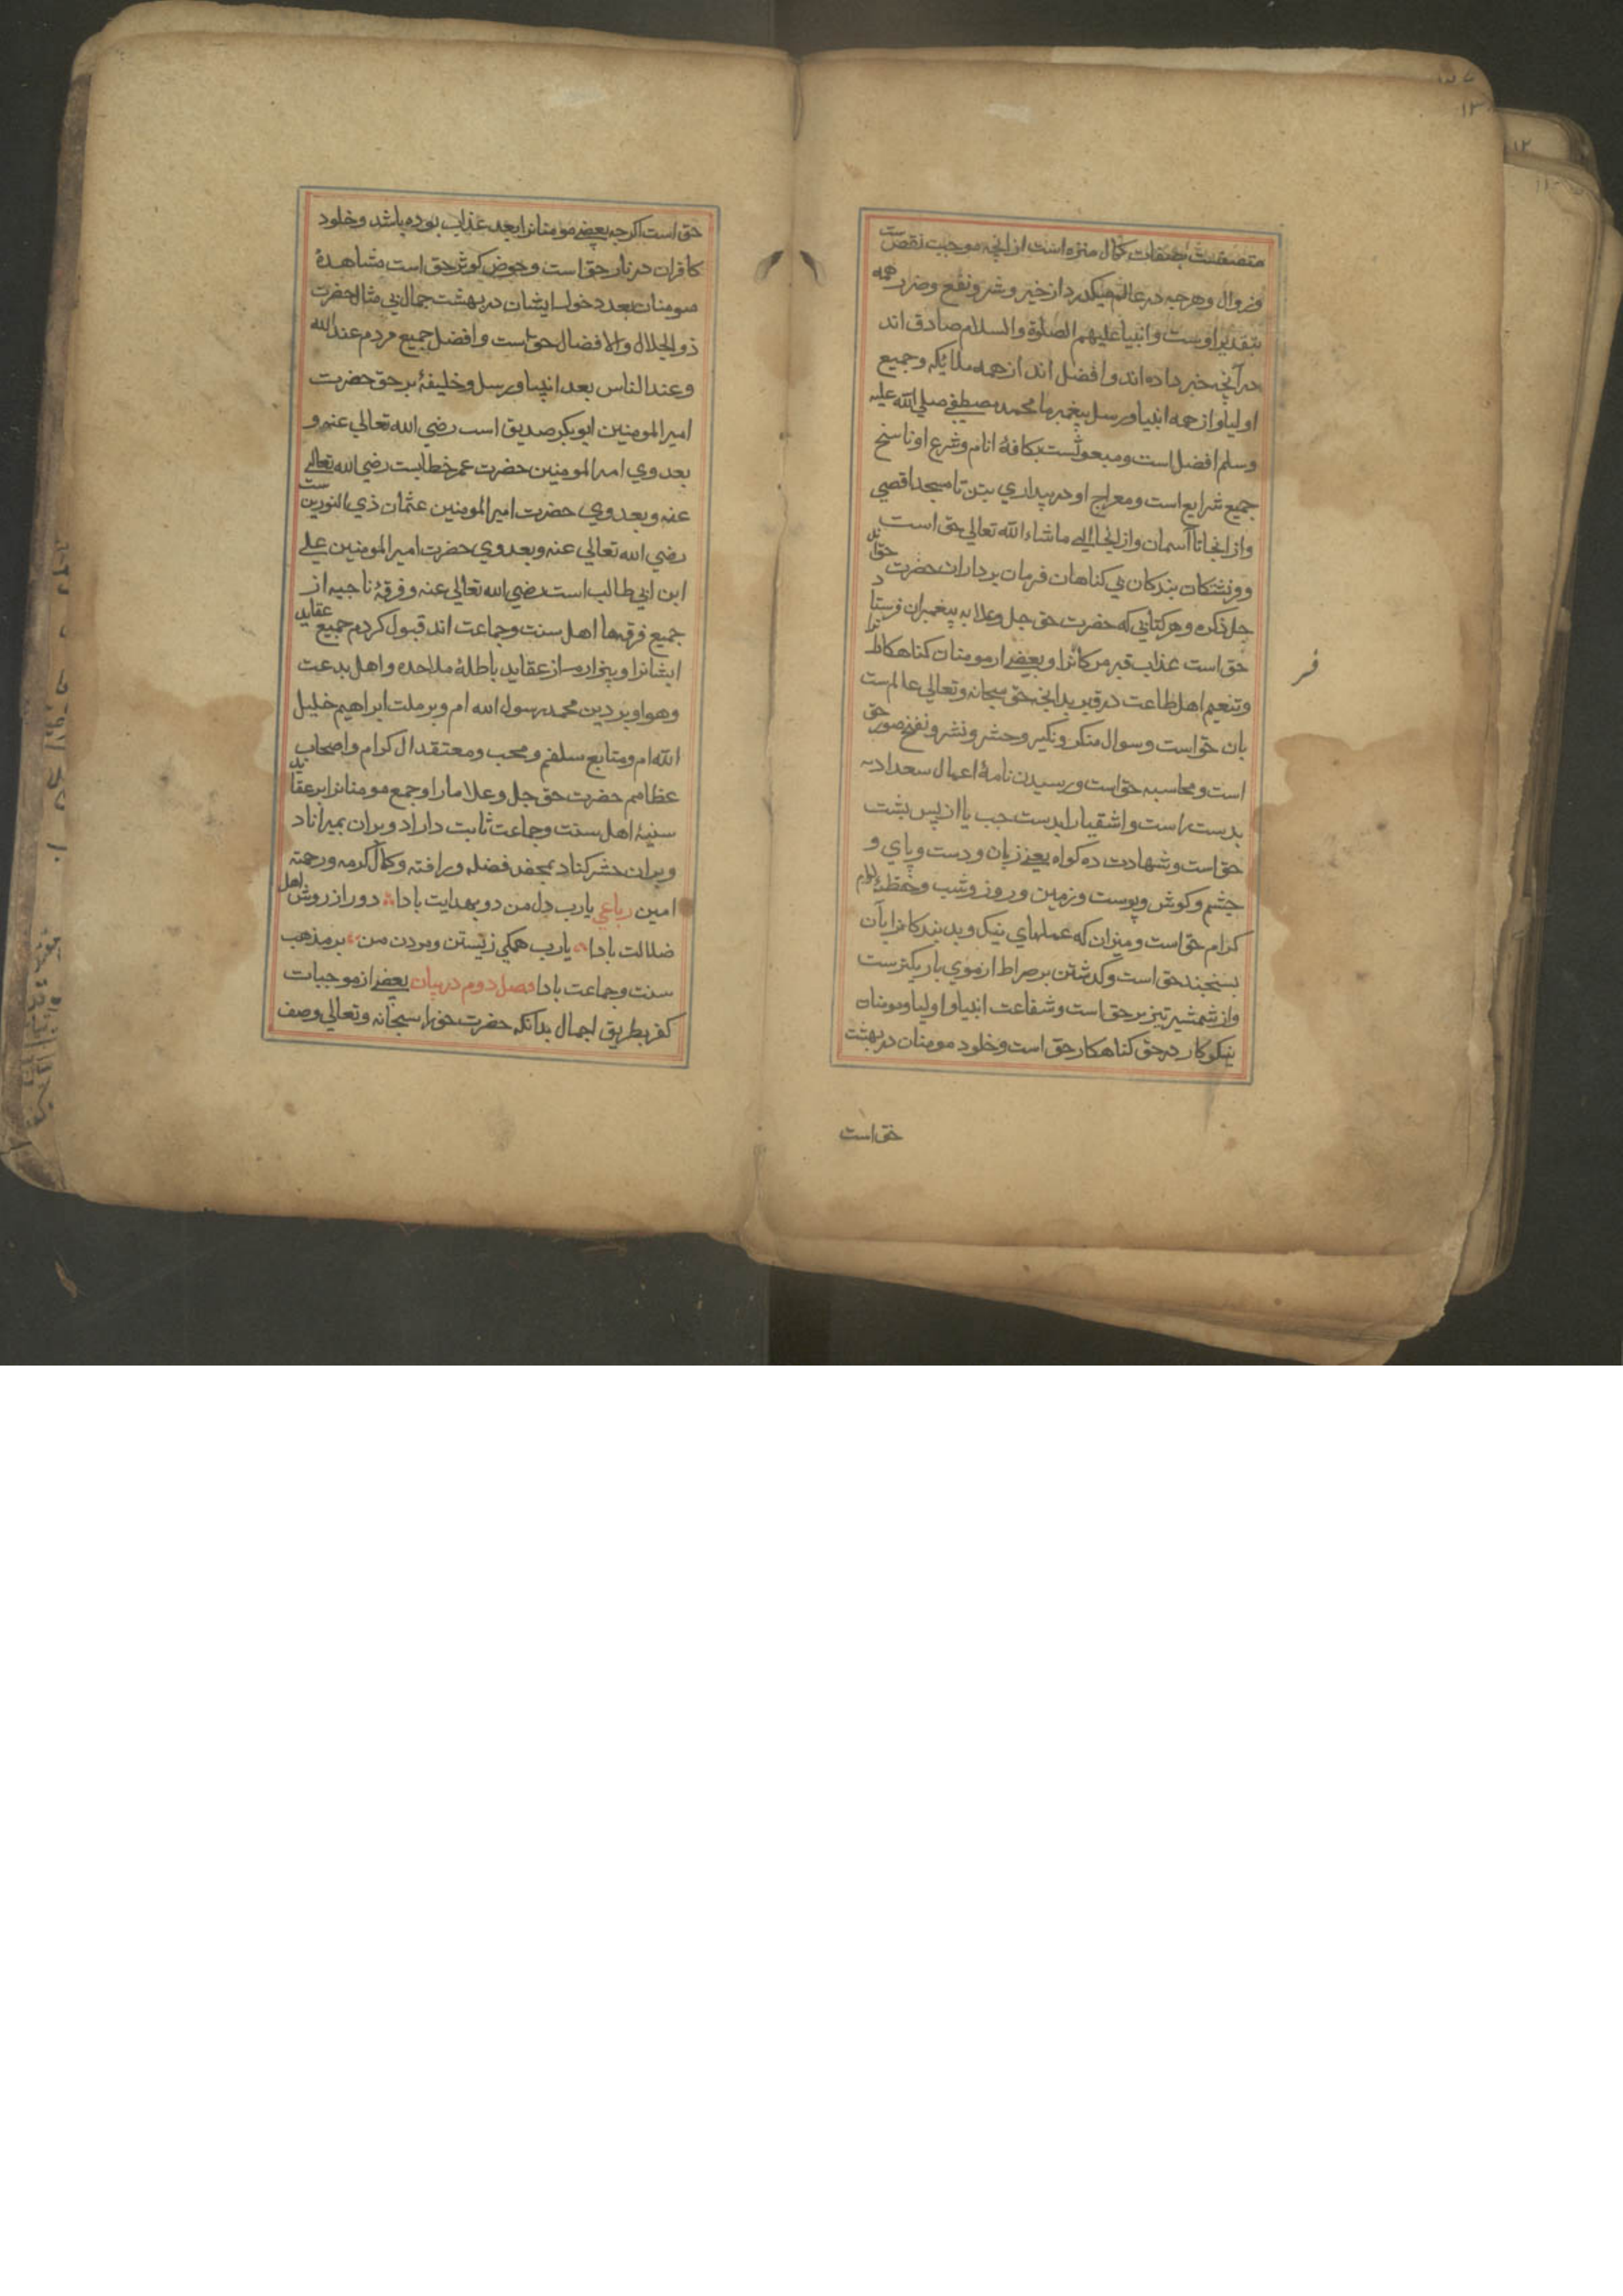 متصفست بصفات کمال منزه است از انچه موجب نقص ست
و زوال و هرچه در عالم میکذرد از خیر و شر و نفع و ضرر همه
بتقدیر اوست و انبیا علیهم الصلوة والسلام صادق اند
در آنچه خبر داده اند و افضل اند از همه ملایکه و جمیع
اولیا و از همه انبیا و رسل پیغمبر ما محمد مصطفی صلی الله علیه
وسلم افضل است و مبعوثست بکافۀ انام و شرع او ناسخ
جمیع شرایع است و معراج او در بیداری بتن تا مسجد اقصی
و از انجا تا آسمان و از انجا الی ما شاء الله تعالی حق است
و فرشتکان بندکان بی کناهان فرمان برداران حضرت حق اند
جل ذکره و هر کتابی که حضرت حق جل و علا به پیغمبران فرستاد
حق است عذاب قبر مر کافرانرا و بعضی از مومنان کناهکارانرا
و تنعیم اهل طاعت در قبر بدانچه حق سبحانه و تعالی عالم ست
بان حق است و سوال منکر و نکیر و حشر و نشر و نفخ صور حق
است و محاسبه حق است و رسیدن نامۀ اعمال سعدا را
بدست راست و اشقیا را بدست چپ یا از پس پشت
حق است و شهادت ده کواه یعنی زبان و دست و پای و
چشم و کوش و پوست و زمین و روز و شب و حفظۀ کرام
کرام حق است و میزان که عملهای نیک و بد بندکانرا بآن
بسنجند حق است و کذشتن بر صراط از موی باریکترست
و از شمشیر تیزتر حق است و شفاعت انبیا و اولیا و مومنان
نیکوکار در حق کناهکار حق است و خلود مومنان در بهشت
حق است
فر
حق است اکرچه بعضی مومنانرا بعد عذاب بوده باشد و خلود
کافران در نار حق است و حوض کوثر حق است مشاهدۀ
مومنان بعد دخول ایشان در بهشت جمال بی مثال حضرت
ذو الجلال والافضال حق است و افضل جمیع مردم عند الله
و عند الناس بعد انبیا و رسل و خلیفۀ برحق حضرت
امیر المومنین ابوبکر صدیق است رضی الله تعالی عنه و
بعد وی امیر المومنین حضرت عمر خطابست رضی الله تعالی
عنه و بعد وی حضرت امیر المومنین عثمان ذی النورین ست
رضی الله تعالی عنه و بعد وی حضرت امیر المومنین علی
ابن ابی طالب است رضی الله تعالی عنه و فرقۀ ناجیه از
جمیع فرقها اهل سنت و جماعت اند قبول کردم جمیع عقاید
ایشانرا و بیزارم از عقاید باطلۀ ملاحده و اهل بدعت
و هوا و بر دین محمد رسول الله ام و بر ملت ابراهیم خلیل
الله ام و متابع سلفم و محب و معتقد ال کرام و اصحاب
عظامم حضرت حق جل و علا ما را و جمع مومنانرا بر عقاید
سنیۀ اهل سنت و جماعت ثابت داراد و بران بمیراناد
و بران حشر کناد بمحض فضله و رافته و کمال کرمه و رحمته
امین رباعی یارب دل من دو بهدایت بادا دور از روش اهل
ضلالت بادا یارب همکی زیستن و مردن من بر مذهب
سنت و جماعت بادا فصل دوم در بیان بعضی از موجبات
کفر بطریق اجمال بدانکه حضرت حق را سبحانه و تعالی وصف